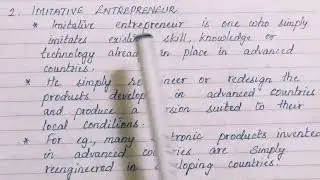 2. IMITATIVE ENTREPRENEUR
* Imitative entrepreneur is one who simply
imitates skill, knowledge or
technology in place in advanced
countries.
* He simply or redesign the
products in advanced countries
and produce a suited to their
local conditions.
* For eg., many products invented
in advanced are simply
reengineered in countries.